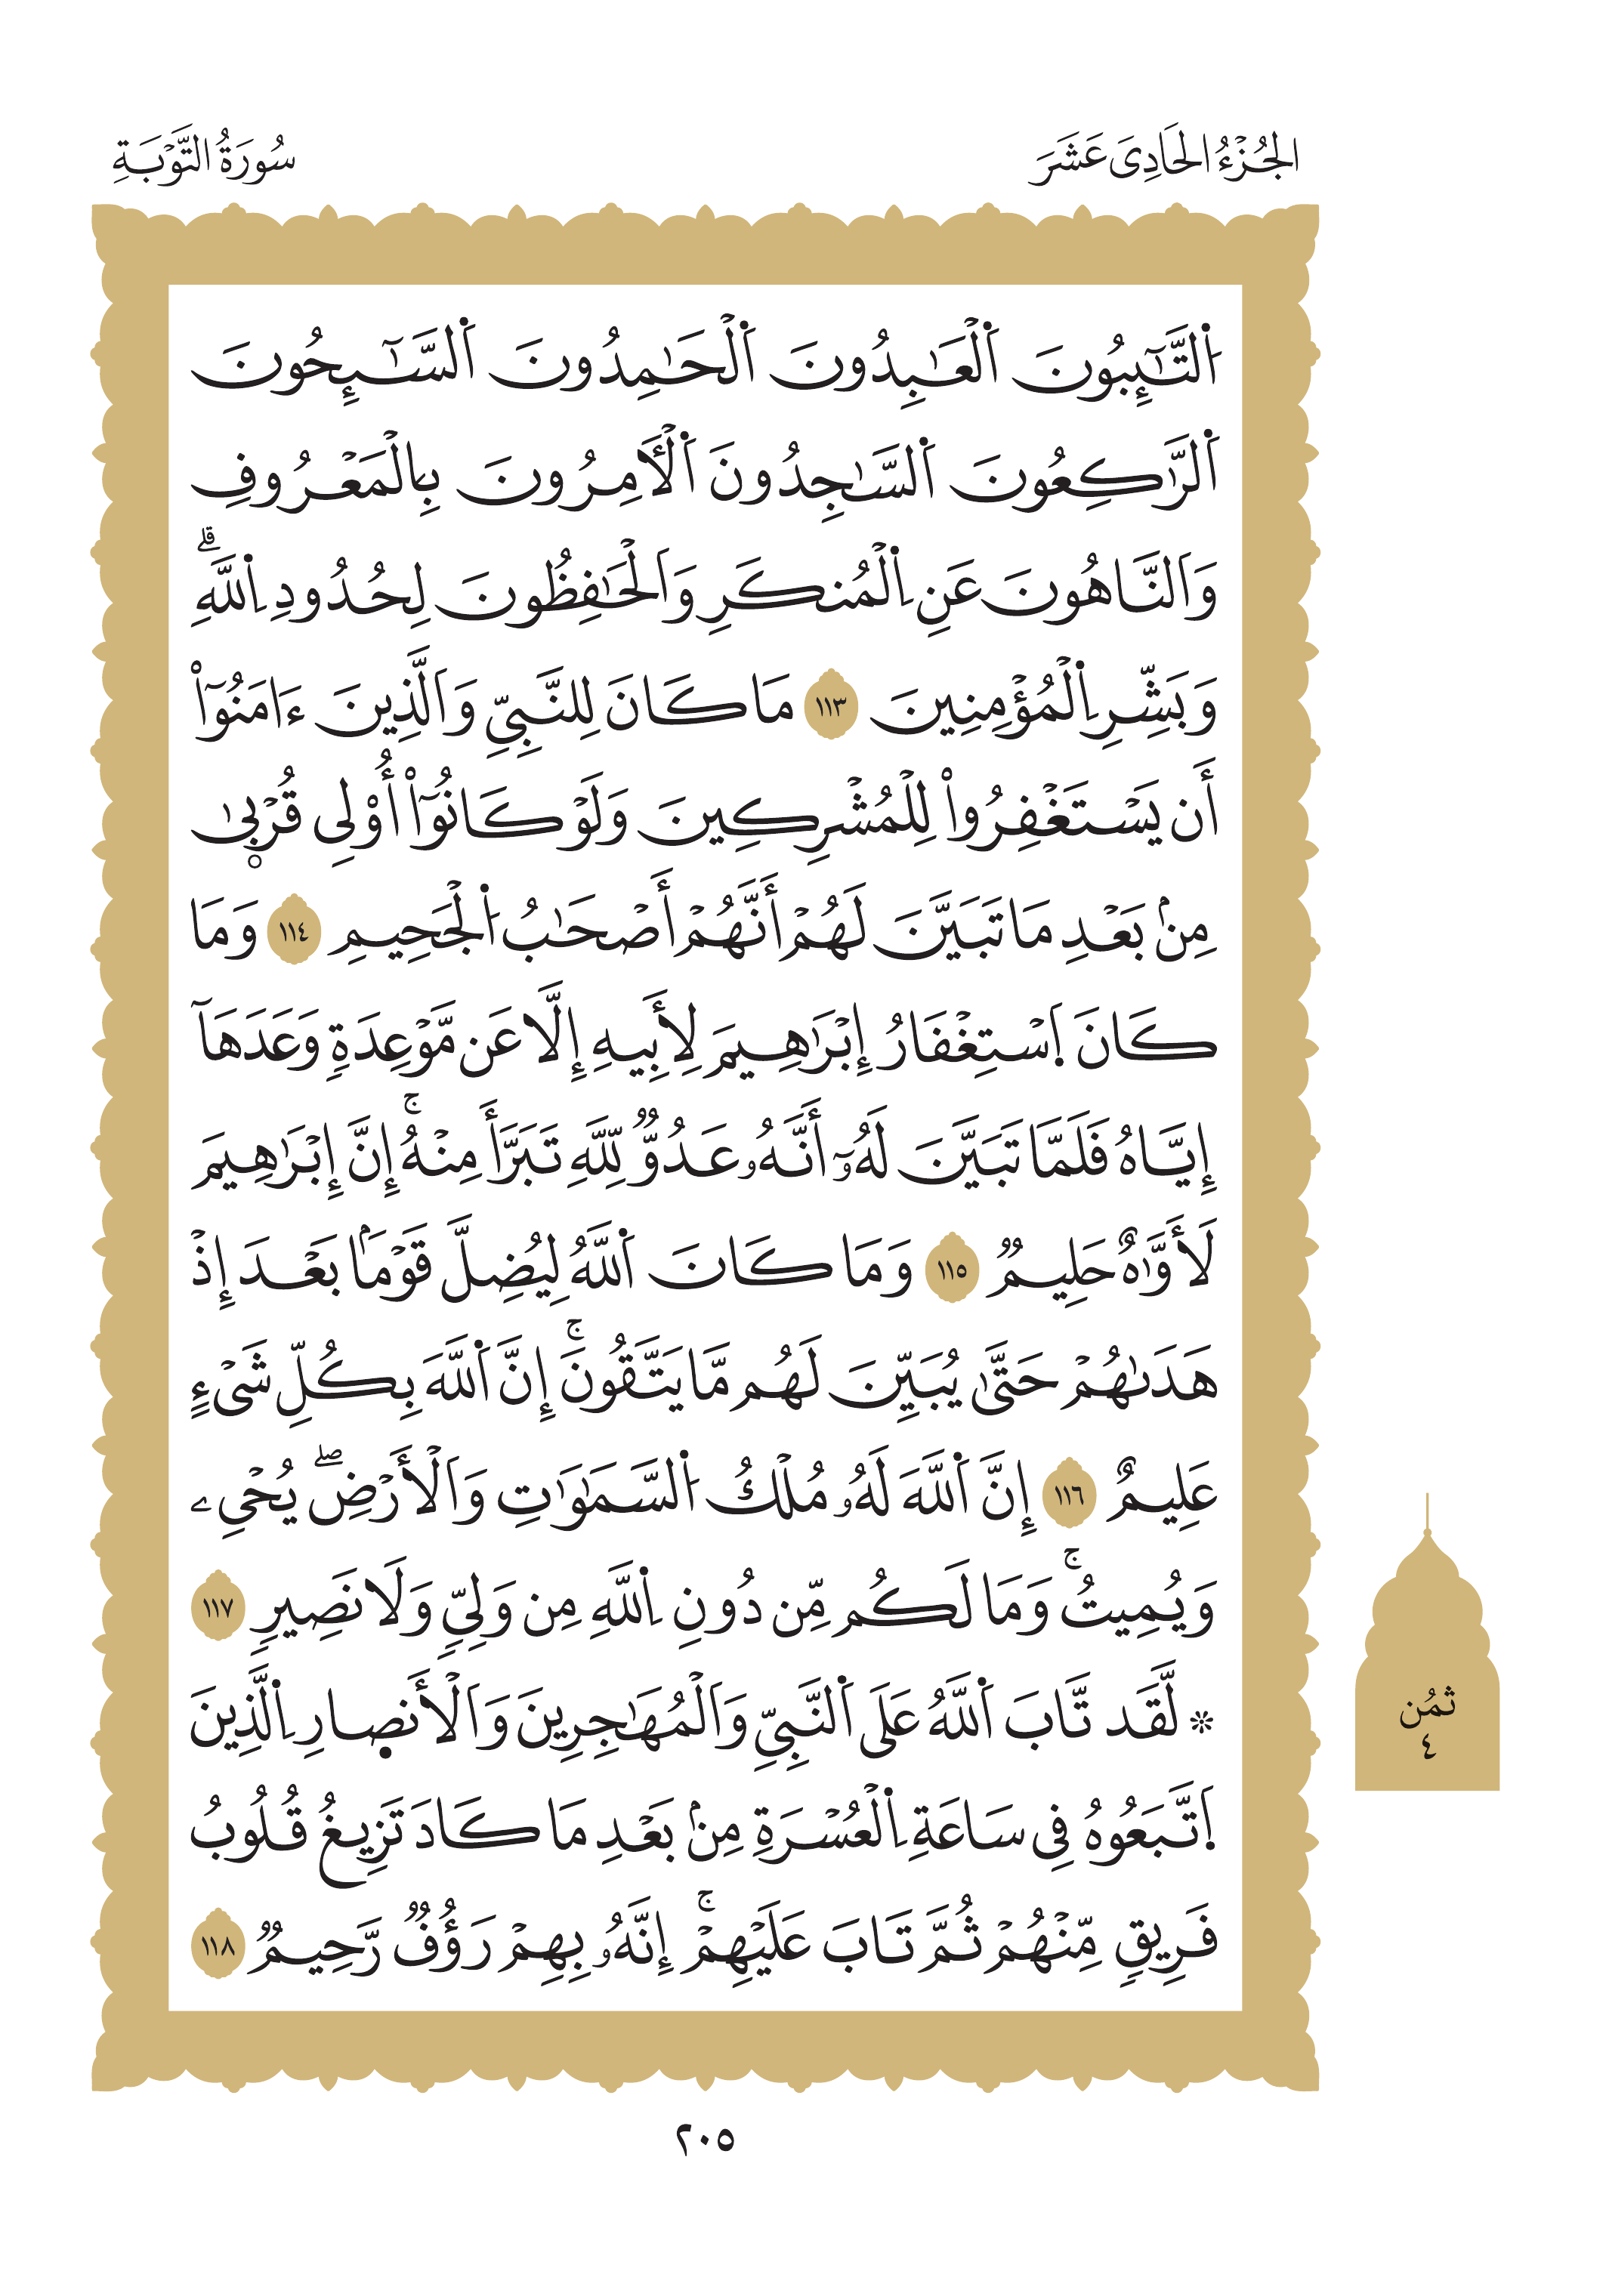 الجُزْءُ الحَادِىَ عَشَرَ
سُورَةُ التَّوْبَةِ
اَ۬لتَّٰٓئِبُونَ اَ۬لْعَٰبِدُونَ اَ۬لْحَٰمِدُونَ اَ۬لسَّٰٓئِحُونَ
اَ۬لرَّٰكِعُونَ اَ۬لسَّٰجِدُونَ اَ۬لْأٓمِرُونَ بِالْمَعْرُوفِ
وَالنَّاهُونَ عَنِ اِ۬لْمُنكَرِ وَالْحَٰفِظُونَ لِحُدُودِ اِ۬للَّهِۗ
وَبَشِّرِ اِ۬لْمُؤْمِنِينَ ١١٣ مَا كَانَ لِلنَّبِيِّ وَالَّذِينَ ءَامَنُوٓاْ
أَن يَسْتَغْفِرُواْ لِلْمُشْرِكِينَ وَلَوْ كَانُوٓاْ أُوْلِى قُرْبىٰ
مِنۢ بَعْدِ مَا تَبَيَّنَ لَهُمْ أَنَّهُمْ أَصْحَٰبُ اُ۬لْجَحِيمِ ١١٤ وَمَا
كَانَ اَ۪سْتِغْفَارُ إِبْرَٰهِيمَ لِأَبِيهِ إِلَّا عَن مَّوْعِدَةٍ وَعَدَهَآ
إِيَّاهُ فَلَمَّا تَبَيَّنَ لَهُۥٓ أَنَّهُۥ عَدُوٌّ لِّلَّهِ تَبَرَّأَ مِنْهُۚ إِنَّ إِبْرَٰهِيمَ
لَأَوَّٰهٌ حَلِيمٌ ١١٥ وَمَا كَانَ اَ۬للَّهُ لِيُضِلَّ قَوْمَۢا بَعْدَ إِذْ
هَدَىٰهُمْ حَتَّىٰ يُبَيِّنَ لَهُم مَّا يَتَّقُونَۚ إِنَّ اَ۬للَّهَ بِكُلِّ شَىْءٍ
عَلِيمٌ ١١٦ إِنَّ اَ۬للَّهَ لَهُۥ مُلْكُ اُ۬لسَّمَٰوَٰتِ وَالْأَرْضِۖ يُحْىِۦ
وَيُمِيتُۚ وَمَا لَكُم مِّن دُونِ اِ۬للَّهِ مِن وَلِىٍّ وَلَا نَصِيرٍ ١١٧
۞ لَّقَد تَّابَ اَ۬للَّهُ عَلَى اَ۬لنَّبِيِّ وَالْمُهَٰجِرِينَ وَالْأَنصِ۪ارِ اِ۬لَّذِينَ
اَ۪تَّبَعُوهُ فِى سَاعَةِ اِ۬لْعُسْرَةِ مِنۢ بَعْدِ مَا كَادَ تَزِيغُ قُلُوبُ
فَرِيقٍ مِّنْهُمْ ثُمَّ تَابَ عَلَيْهِمْۚ إِنَّهُۥ بِهِمْ رَؤُفٌ رَّحِيمٌ ١١٨
ثُمُن
٤
٢٠٥